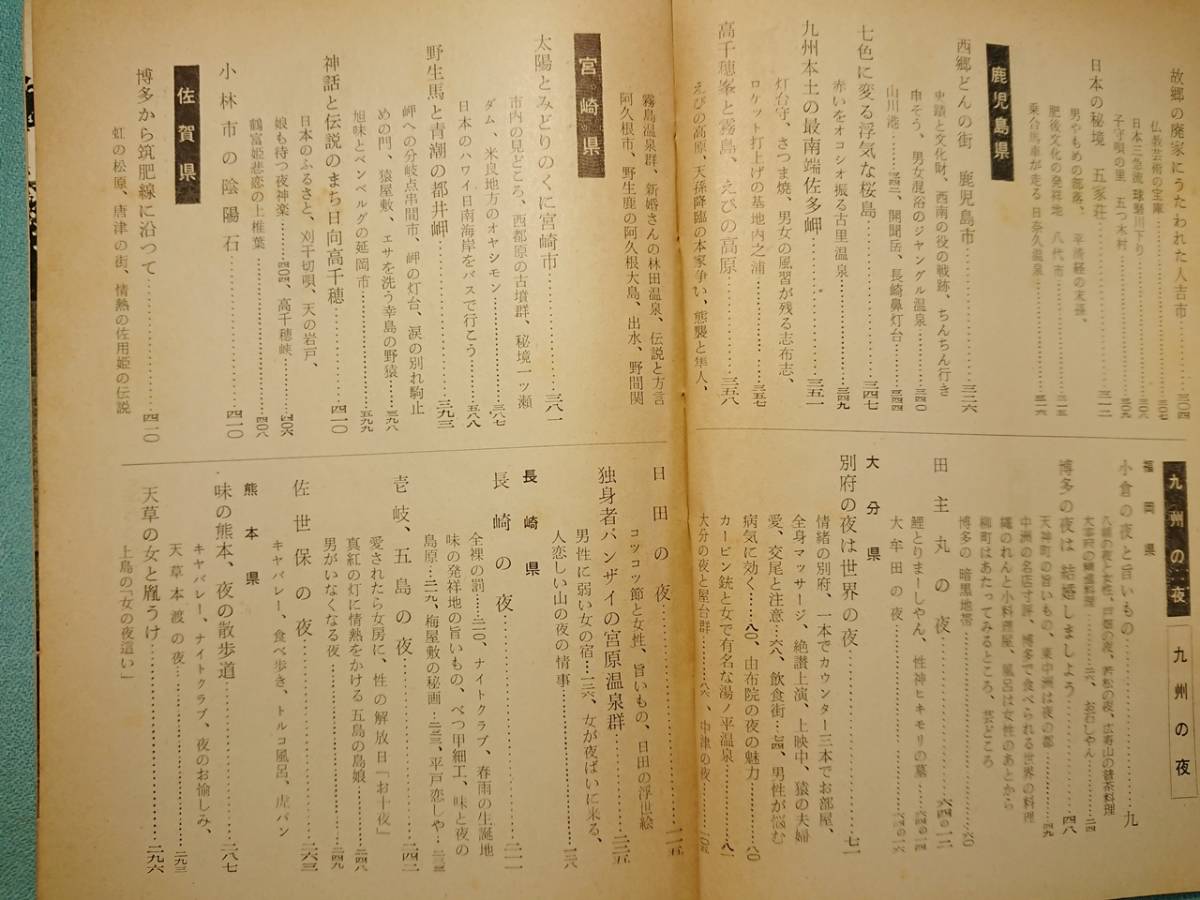 故郷の廃家にうたわれた人吉市……三〇四
仏教芸術の宝庫……三〇七
日本三急流 球磨川下り……三〇六
子守唄の里 五つ木村……三〇九
日本の秘境 五家荘……三一二
男やもめの部落、平清経の末孫、
肥後文化の発祥地 八代市……三一五
乗合馬車が走る 日奈久温泉……三一六
鹿児島県
西郷どんの街 鹿児島市……三三六
史蹟と文化財、西南の役の戦跡、ちんちん行き
申そう、男女混浴のジャングル温泉……三四〇
山川港……三四二、開聞岳、長崎鼻灯台……三四四
七色に変る浮気な桜島……三四七
赤いをオコシオ振る古里温泉……三四九
九州本土の最南端佐多岬……三五一
灯台守、さつま焼、男女の風習が残る志布志、
ロケット打上げの基地内之浦……三五七
高千穂峯と霧島、えびの高原……三五八
えびの高原、天孫降臨の本家争い、熊襲と隼人、
霧島温泉群、新婚さんの林田温泉、伝説と方言
阿久根市、野生鹿の阿久根大島、出水、野間関
宮崎県
太陽とみどりのくに宮崎市……三八一
市内の見どころ、西都原の古墳群、秘境一ッ瀬
ダム、米良地方のオヤシモン……三八七
日本のハワイ日南海岸をバスで行こう……五八八
野生馬と青潮の都井岬……三九三
岬への分岐点串間市、岬の灯台、涙の別れ駒止
めの門、猿屋敷、エサを洗う幸島の野猿……三九八
旭味とベンベルグの延岡市……五九九
神話と伝説のまち日向高千穂……四一〇
日本のふるさと、刈干切唄、天の岩戸、
娘も待つ夜神楽……四〇五、高千穂峡……四〇六
鶴富姫悲恋の上椎葉……四〇八
小林市の陰陽石……四一〇
佐賀県
博多から筑肥線に沿つて……四一〇
虹の松原、唐津の街、情熱の佐用姫の伝説
九州の夜
九州の夜
福岡県
小倉の夜と旨いもの……九
八幡の夜と女性、戸畑の夜、若松の夜、広寿山の普茶料理……二四
お石しやん……二六
博多の夜は 結婚しましよう……四八
天神町の旨いもの、東中洲は夜の都
中洲の名店寸評、博多で食べられる世界の料理……四九
縄のれんと小料理屋、風呂は女性のあとから
柳町はあたってみるところ、芸どころ
博多の暗黒地帯……六〇
田主丸の夜……六四の一二
鯉とりまーしやん、性神ヒキモリの墓……六四の一四
大牟田の夜……六四の一六
大分県
別府の夜は世界の夜……七一
情緒の別府、一本でカウンター三本でお部屋、
全身マッサージ、絶讃上演、上映中、猿の夫婦
愛、交尾と注意……六八、飲食街……七四、男性が悩む
病気に効く……八〇、由布院の夜の魅力……八〇
カービン銃と女で有名な湯ノ平温泉……八一
大分の夜と屋台群……八六、中津の夜……一〇五
日田の夜……一一五
コツコツ節と女性、旨いもの、日田の浮世絵
独身者バンザイの宮原温泉群……二三五
男性に弱い女の宿……一三六、女が夜ばいに来る、
人恋しい山の夜の情事……一三八
長崎県
長崎の夜……二一一
全裸の罰……二二〇、ナイトクラブ、春雨の生誕地
味の発祥地の旨いもの、べつ甲細工、味と夜の
島原……二二九、梅屋敷の秘画……二三三、平戸恋しや……二三三
壱岐、五島の夜……二四二
愛されたら女房に、性の解放日「お十夜」
真紅の灯に情熱をかける 五島の島娘……二四八
男がいなくなる夜……二四九
佐世保の夜……二六三
キャバレー、食べ歩き、トルコ風呂、虎パン
熊本県
味の熊本、夜の散歩道……二八七
キャバレー、ナイトクラブ、夜のお愉しみ、
天草本渡の夜……二九三
天草の女と胤うけ……二九六
上島の「女の夜這い」